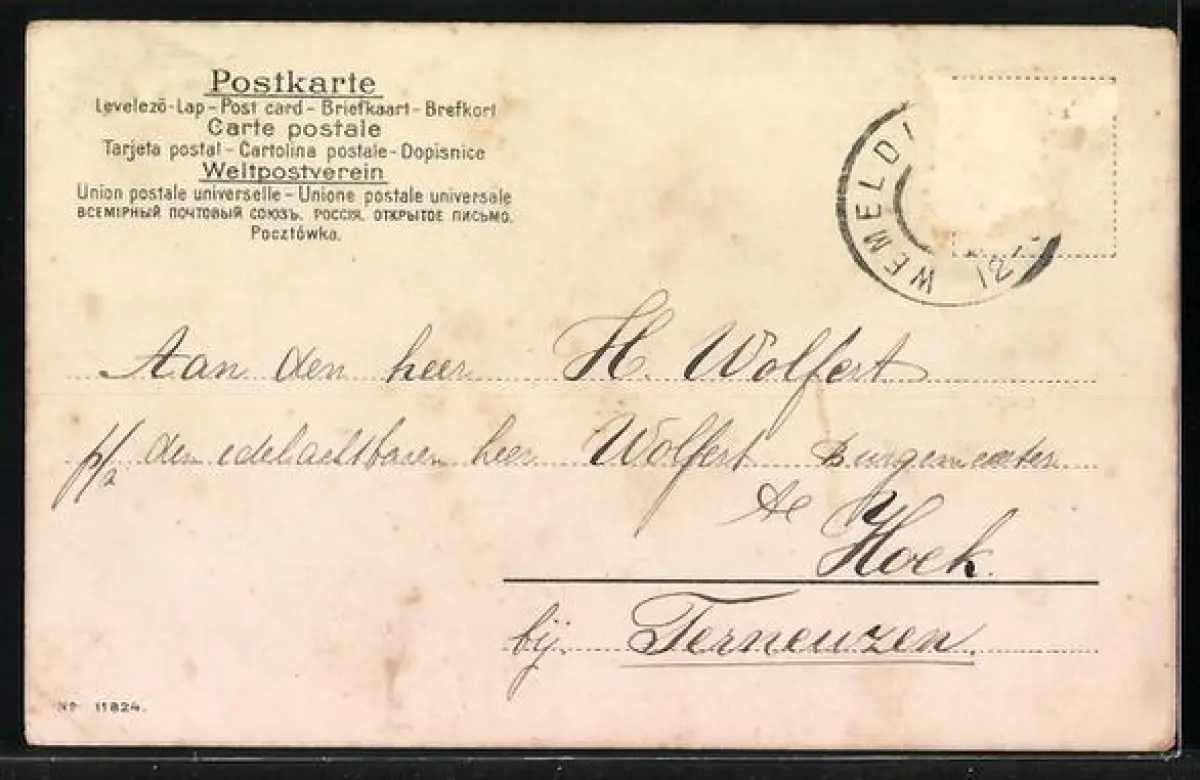 Postkarte
Levelező-Lap – Post card – Briefkaart – Brefkort
Carte postale
Tarjeta postal – Cartolina postale – Dopisnice
Weltpostverein
Union postale universelle – Unione postale universale
ВСЕМІРНЫЙ ПОЧТОВЫЙ СОЮЗЪ. РОССІЯ. ОТКРЫТОЕ ПИСЬМО.
Pocztówka.
WEMELDI
12
Aan den heer H. Wolfert
p/a den edelachtbaren heer Wolfert Burgemeester
te Hoek.
bij Terneuzen.
No 11824.